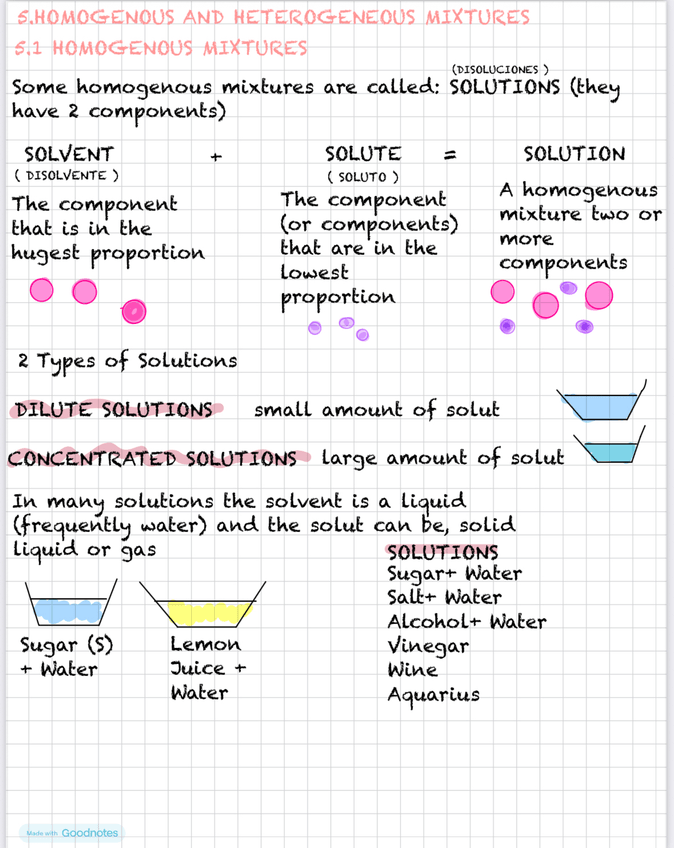 5.HOMOGENOUS AND HETEROGENEOUS MIXTURES
5.1 HOMOGENOUS MIXTURES
(DISOLUCIONES )
Some homogenous mixtures are called: SOLUTIONS (they
have 2 components)
SOLVENT + SOLUTE = SOLUTION
( DISOLVENTE )
( SOLUTO )
The component
that is in the
hugest proportion
The component
(or components)
that are in the
lowest
proportion
A homogenous
mixture two or
more
components
2 Types of Solutions
DILUTE SOLUTIONS small amount of solut
CONCENTRATED SOLUTIONS large amount of solut
In many solutions the solvent is a liquid
(frequently water) and the solut can be, solid
liquid or gas
Sugar (S)
+ Water
Lemon
Juice +
Water
SOLUTIONS
Sugar+ Water
Salt+ Water
Alcohol+ Water
Vinegar
Wine
Aquarius
Made with Goodnotes